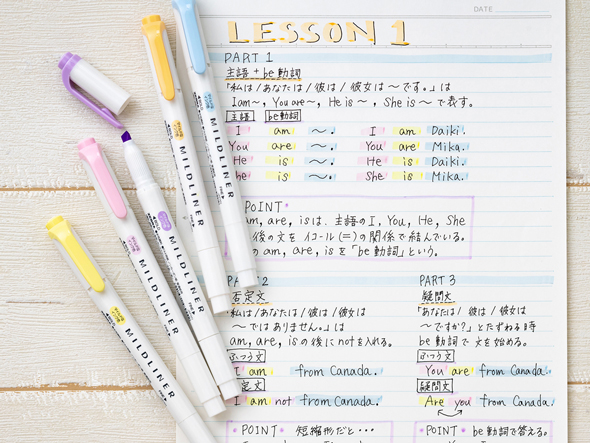 DATE
LESSON 1
PART 1
主語 + be動詞
「私は/あなたは/彼は/彼女は〜です。」は
I am〜, You are〜, He is〜, She is〜 で表す。
主語 be動詞
I am 〜. I am Daiki.
You are 〜. You are Mika.
He is 〜. He is Daiki.
She is 〜. She is Mika.
POINT*
am, are, isは、主語のI, You, He, She
後の文を イコール(=)の関係で結んでいる。
am, are, isを「be動詞」という。
2
否定文
私は/あなたは/彼は/彼女は
〜ではありません。」は
am, are, isの後にnotを入れる。
ふつう文
I am from Canada.
定文
I am not from Canada.
*POINT* 短縮形だと…
PART 3
疑問文
「あなたは/彼は/彼女は
〜ですか?」とたずねる時
be動詞で文を始める。
ふつう文
You are from Canada.
疑問文
Are you from Canada.
*POINT* be動詞で答える。
MILDLINER
MILDLINER
MILDLINER
MILDLINER
MILDLINER